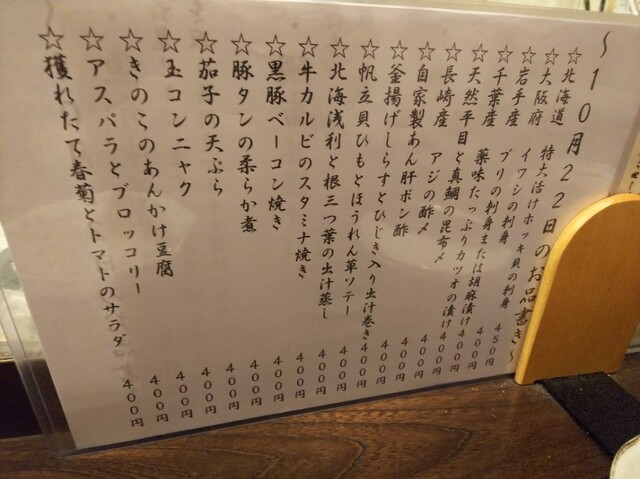 ～10月22日のお品書き～
☆北海道 特大活けホッキ貝の刺身 450円
☆大阪府 イワシの刺身 400円
☆岩手産 ブリの刺身または胡麻漬け 400円
☆千葉産 薬味たっぷりカツオの漬け 400円
☆天然平目と真鯛の昆布〆 400円
☆長崎産 アジの酢〆 400円
☆自家製あん肝ポン酢 400円
☆釜揚げしらすとひじき入り出汁巻き 400円
☆帆立貝ひもとほうれん草ソテー 400円
☆北海浅利と根三つ葉の出汁蒸し 400円
☆牛カルビのスタミナ焼き 400円
☆黒豚ベーコン焼き 400円
☆豚タンの柔らか煮 400円
☆茄子の天ぷら 400円
☆玉コンニャク 400円
☆きのこのあんかけ豆腐 400円
☆アスパラとブロッコリー 400円
☆獲れたて春菊とトマトのサラダ 400円